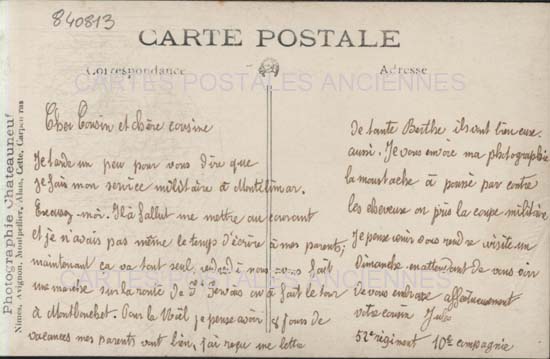 840813
CARTE POSTALE
Correspondance
Adresse
CARTES POSTALES ANCIENNES
CARTES POSTALES ANCIENNES
Photographie Chateauneuf
Nimes, Avignon, Montpellier, Alais, Cette, Carpentras
Cher Cousin et chère cousine
Je tarde un peu pour vous dire que
je fais mon service militaire à Montélimar.
Excusez-moi. Il à fallut me mettre au courant
et je n'avais pas même le temps d'écrire à mes parents;
maintenant ça va tout seul, vendredi nous avons fait
une marche sur la route de St Gervais on à fait le tour
à Montboucher. Pour la Noël je pense avoir 8 jours de
vacances mes parents vont bien, j'ai reçu une lettre
de tante Berthe ils ont l'air
aussi. Je vous envoie ma photographie
la moustache à poussé par contre
les cheveux on pris la coupe militaire
Je pense venir vous rendre visite un
Dimanche en attendant de vous voir
Je vous embrasse affectueusement
votre cousin Jules
52e régiment 10e compagnie